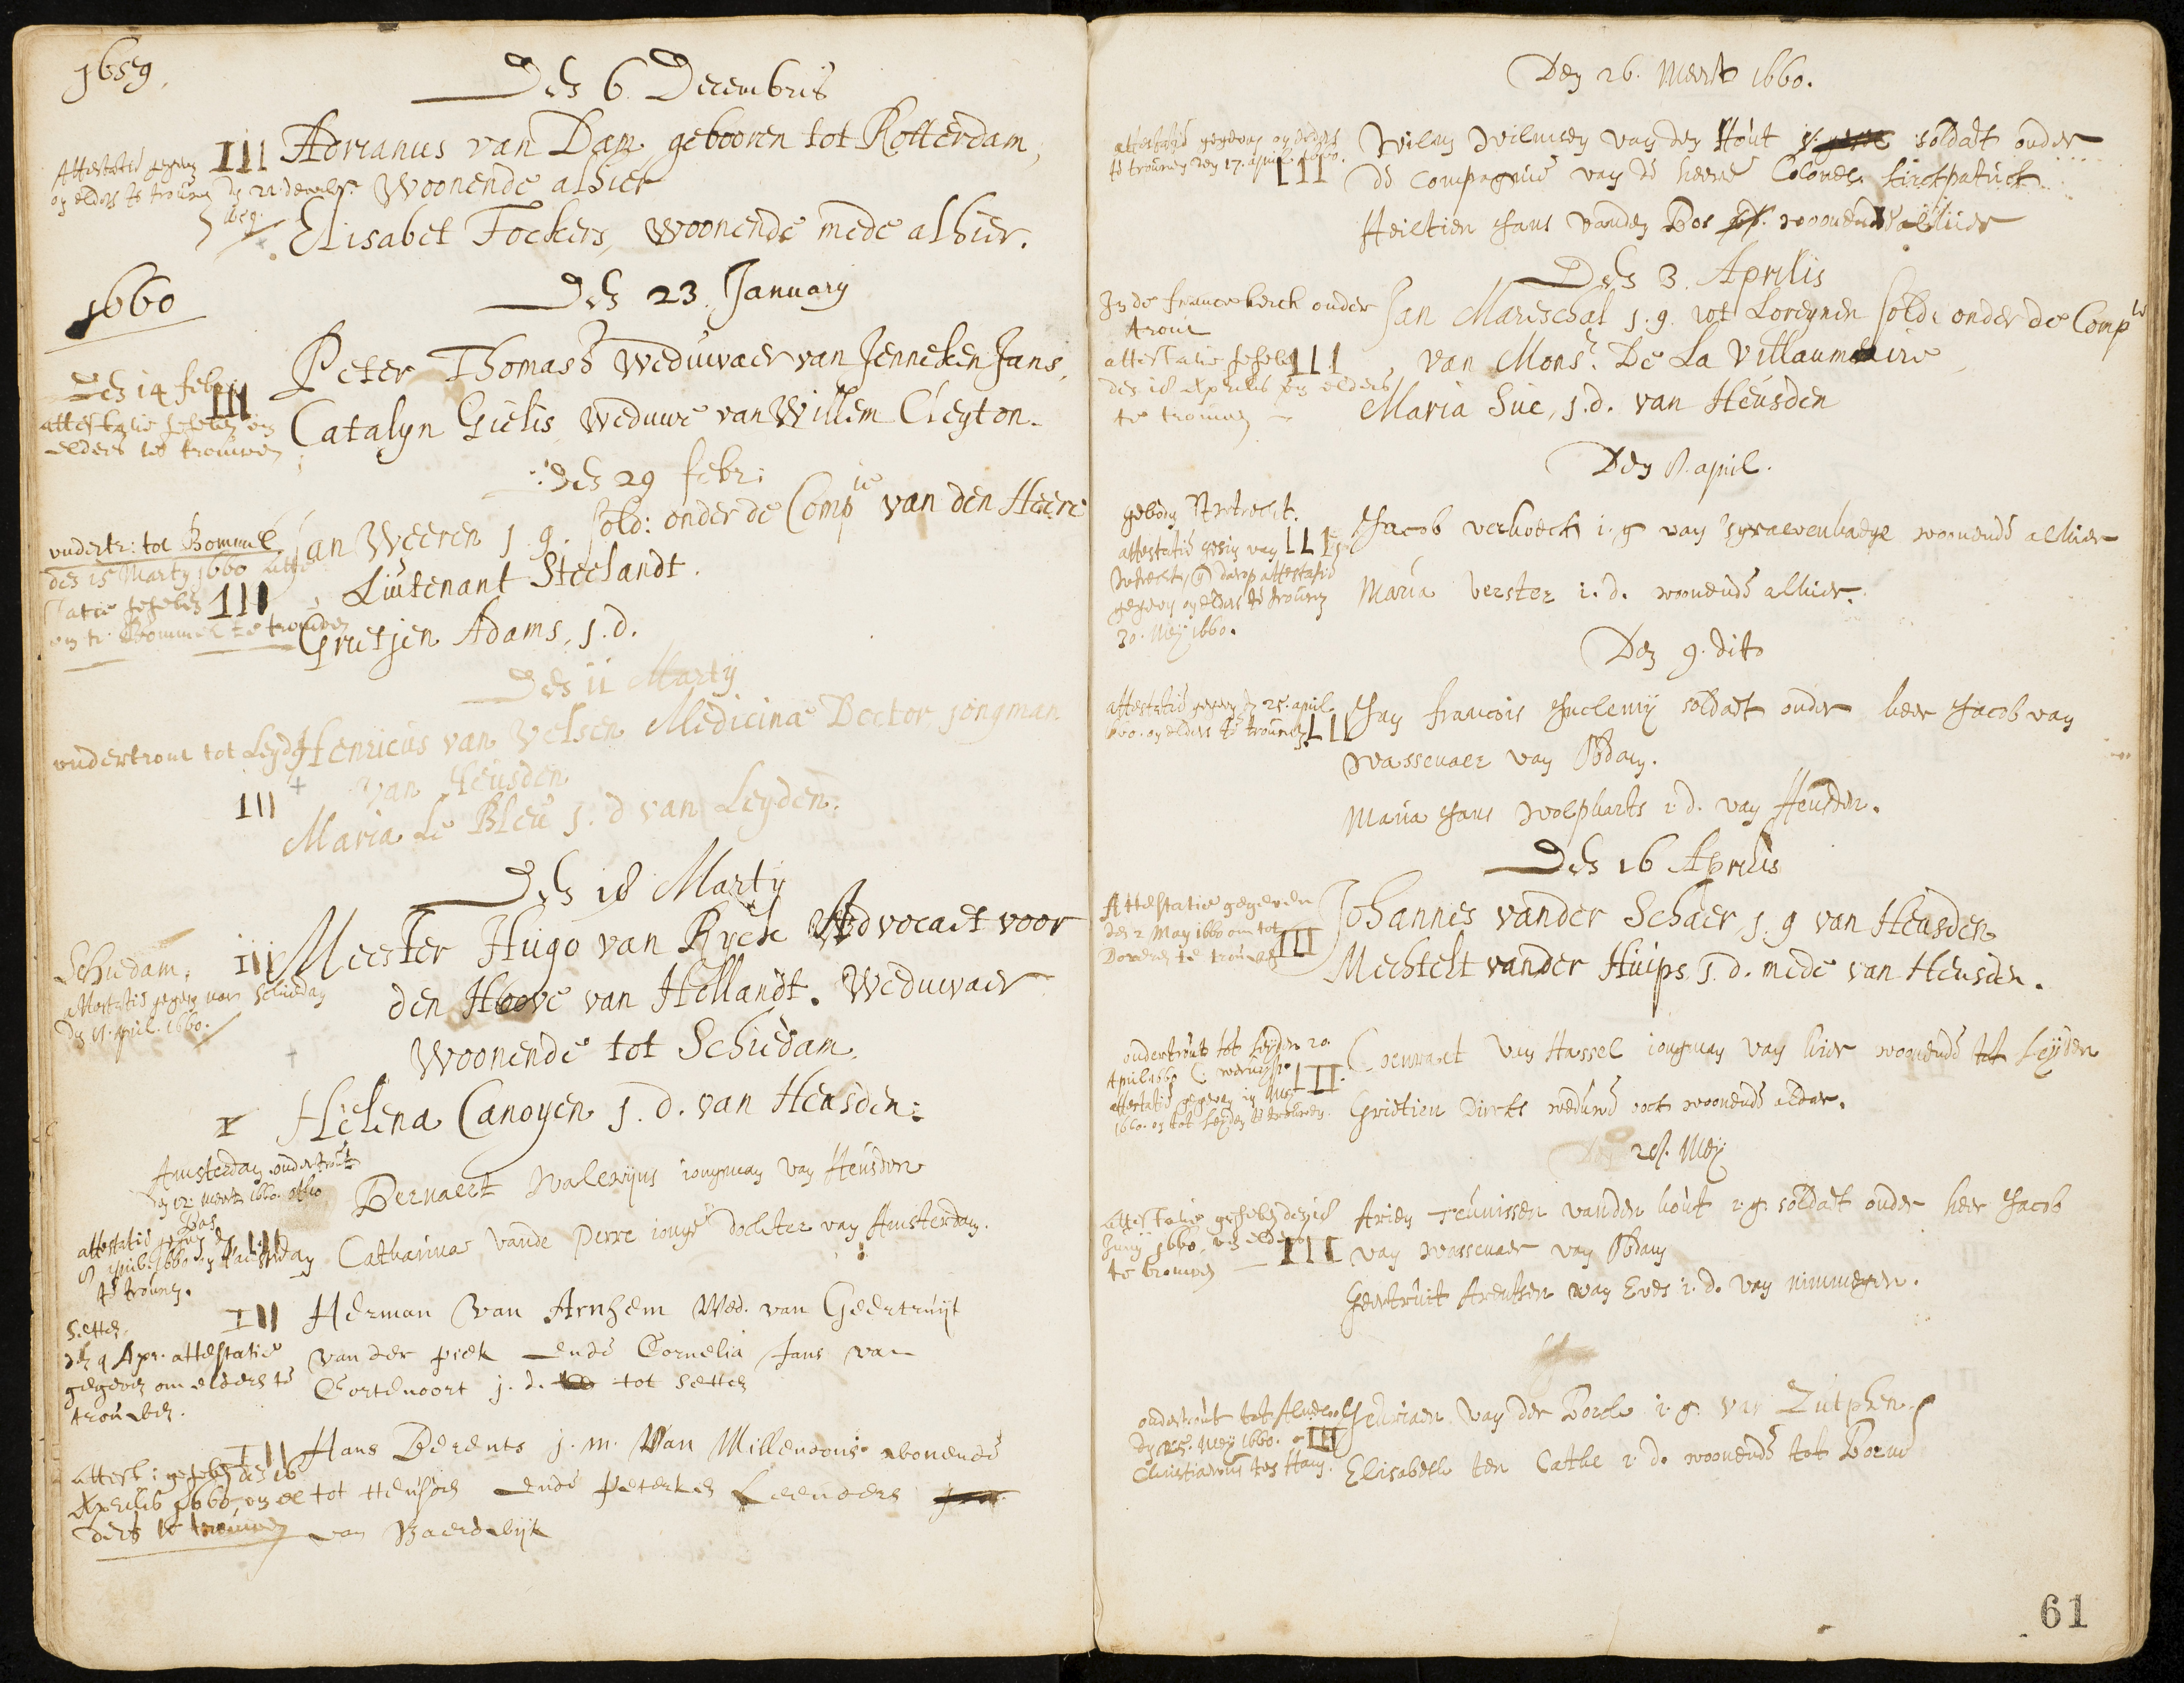 1659.
Den 6 Decembris
Attestatie gegeven
om elders te trouwen den 21 decembr.
1659.
III Adrianus van Dam, gebooren tot Rotterdam,
Woonende alhier
Elisabet Fockers, woonende mede alhier.
1660
Den 23 January
Den 14 feb:
III
attestatie gegeben om
elders te trouwen
Peter Thomass Weduwaer van Jenneken Jans,
Catalyn Gielis, weduwe van Willem Cleyton.
Den 29 febr:
ondertr: tot Bommel
den 15 Marty 1660 atte
statie gegeben III
om te Bommel te trouwen
Jan Weeren j. g. sold: onder de Compie van den Heere
Luitenant Steelandt.
Grietjen Adams, j. d.
Den 11 Marty
ondertrout tot Leyden
III
Henricus van Velsen Medicinae Doctor, jongman
van Heusden
Maria Le Bleu j. d van Leyden.
Den 18 Marty
Schiedam.
attestatie gegeven van Schiedam
den 11. april. 1660.
III Meester Hugo van Ryck Advocaet voor
den Hoove van Hollandt. Weduwaer
Woonende tot Schiedam.
I Helena Canoyen j. d. van Heusden:
Amsterdam ondertrout
den 12. meert 1660.
attestatie gegeven den
8 april 1660 om t'Amsterdam
te trouwen.
III
Bernaert Walewyns iongman van Heusden
Catharina vande Perre ionge dochter van Amsterdam.
Setten.
den 9 Apr. attestatie
gegeven om elders te
trouwen.
III Herman van Arnhem Wed. van Geertruijt
van der Piek ende Cornelia Jans van
Cortenoort j. d. tot Setten
Attest: gegeben den 16
Aprilis 1660, om el
ders te trouwen
III Hans Berents j. m. Van Millendonk wonende
tot Heusden ende Peterken Leenders
van Waerdwijk
Den 26. Meert 1660.
attestatie gegeven om elders
te trouwen den 17. april 1660.
III
Wilm Wilmsen van den Hout soldaet onder
de Compagnie van de heere Colonel kirckpatrick
Heiltien Jans vanden Bos woonende alhier
Den 3. Aprilis
In de france kerck onder
trout
attestatie gegeben III
den 18 Aprilis om elders
te trouwen
Jan Mareschal j. g. uyt Loreynen sold: onder de Compie
van Monsr. De La Villaumaire
Maria Sue, j. d. van Heusden
Den 8. april.
geboden Uutrecht.
attestatie gesien van III
Uutrecht, daerop attestatie
gegeven om elders te trouwen
30. Mey 1660.
Jacob verhoeck i. g van 'sgravenhaege woonende alhier
Maria Verster i. d. woonende alhier.
Den 9. dito
attestatie gegeven den 25. april
1660. om elders te trouwen III
Jan francois soldaet onder heer Jacob van
Wassenaer van Obdam.
Maria Jans Wolpharts i d. van Heusden.
Den 16 Aprilis
Attestatie gegeven
den 2 May 1660 om tot
Doveren te trouwen III
Johannes vander Schaer, j. g van Heusden
Mechtelt vander Huips, j. d. mede van Heusden.
ondertrout tot Leyden 20.
April 1660
III
attestatie gegeven in Mey
1660. om tot Leyden te trouwen.
Coenraet van Hassel iongman van hier woonende tot Leyden
Grietien Dircks weduwe oock woonende aldaer.
Den 28. Mey
Attestatie gegeben den 18
Juny 1660, om elders III
te trouwen
Arien Teunissen vanden hout i. g. soldaet onder heer Jacob
van Wassenaer van Obdam
Geertruit Arentsen van Eves i. d. van nimmegen.
ondertrout tot Almeloo
den 25. Mey 1660. III
Christianus ten Ham.
Jeuriaen van der Borch i. g. van Zutphen.
Elisabeth ten Cathe i d. woonende tot Borne
61